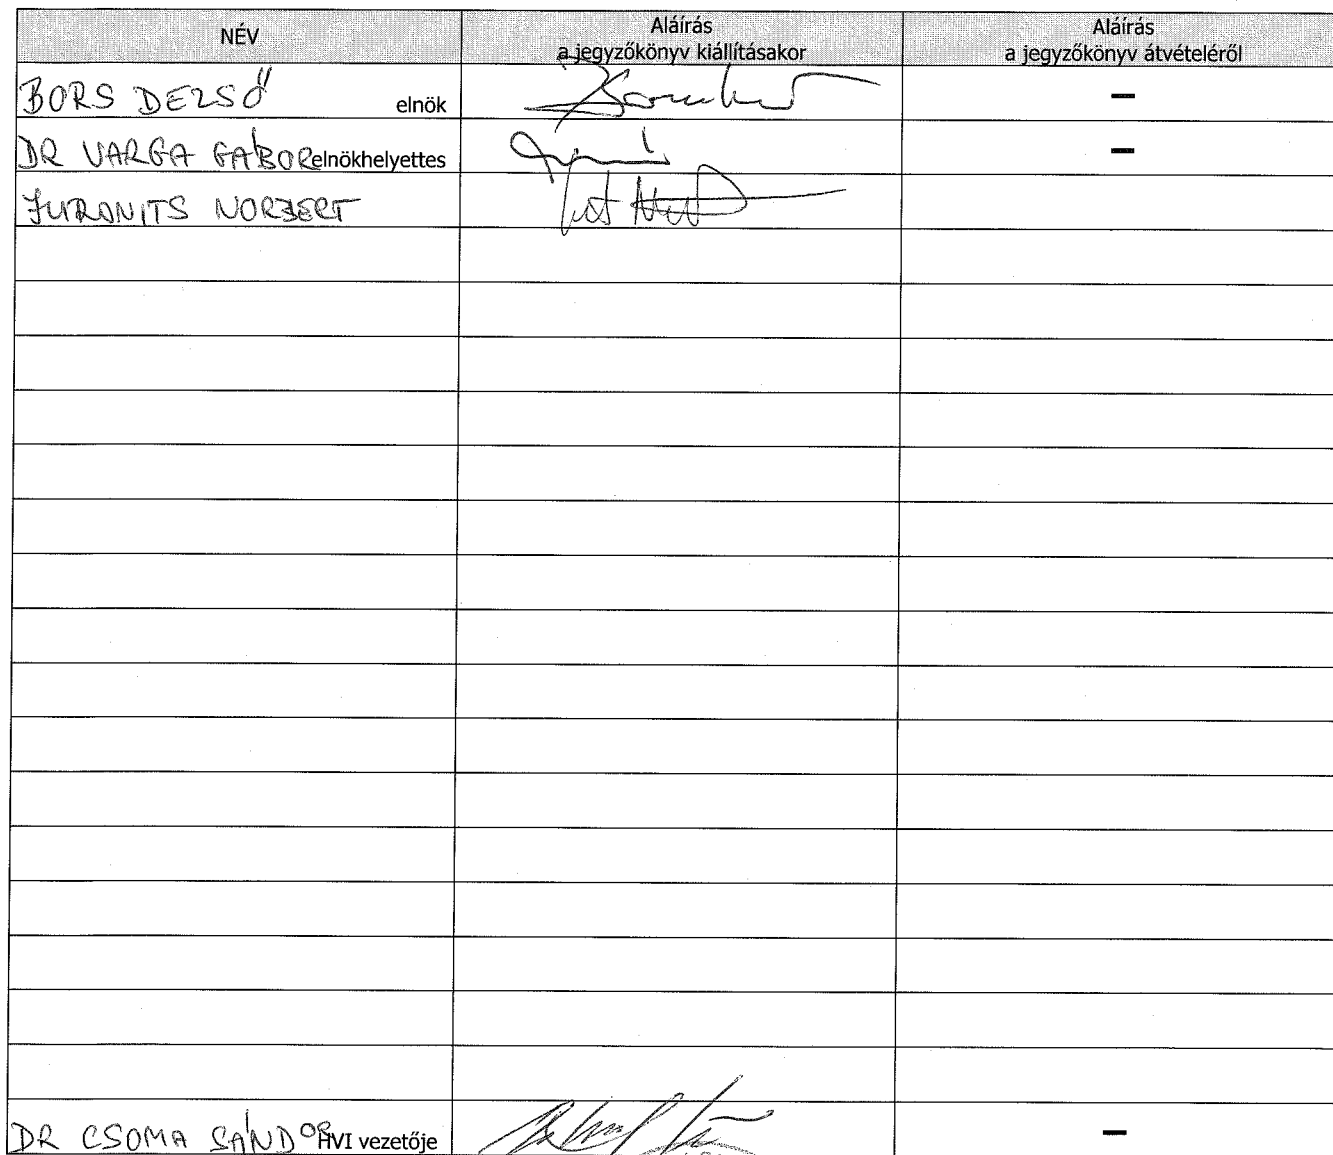 NÉV
Aláírás
a jegyzőkönyv kiállításakor
Aláírás
a jegyzőkönyv átvételéről
BORS DEZSŐ elnök –
DR VARGA GÁBOR elnökhelyettes –
JURONITS NORBERT
DR CSOMA SÁNDOR HVI vezetője –